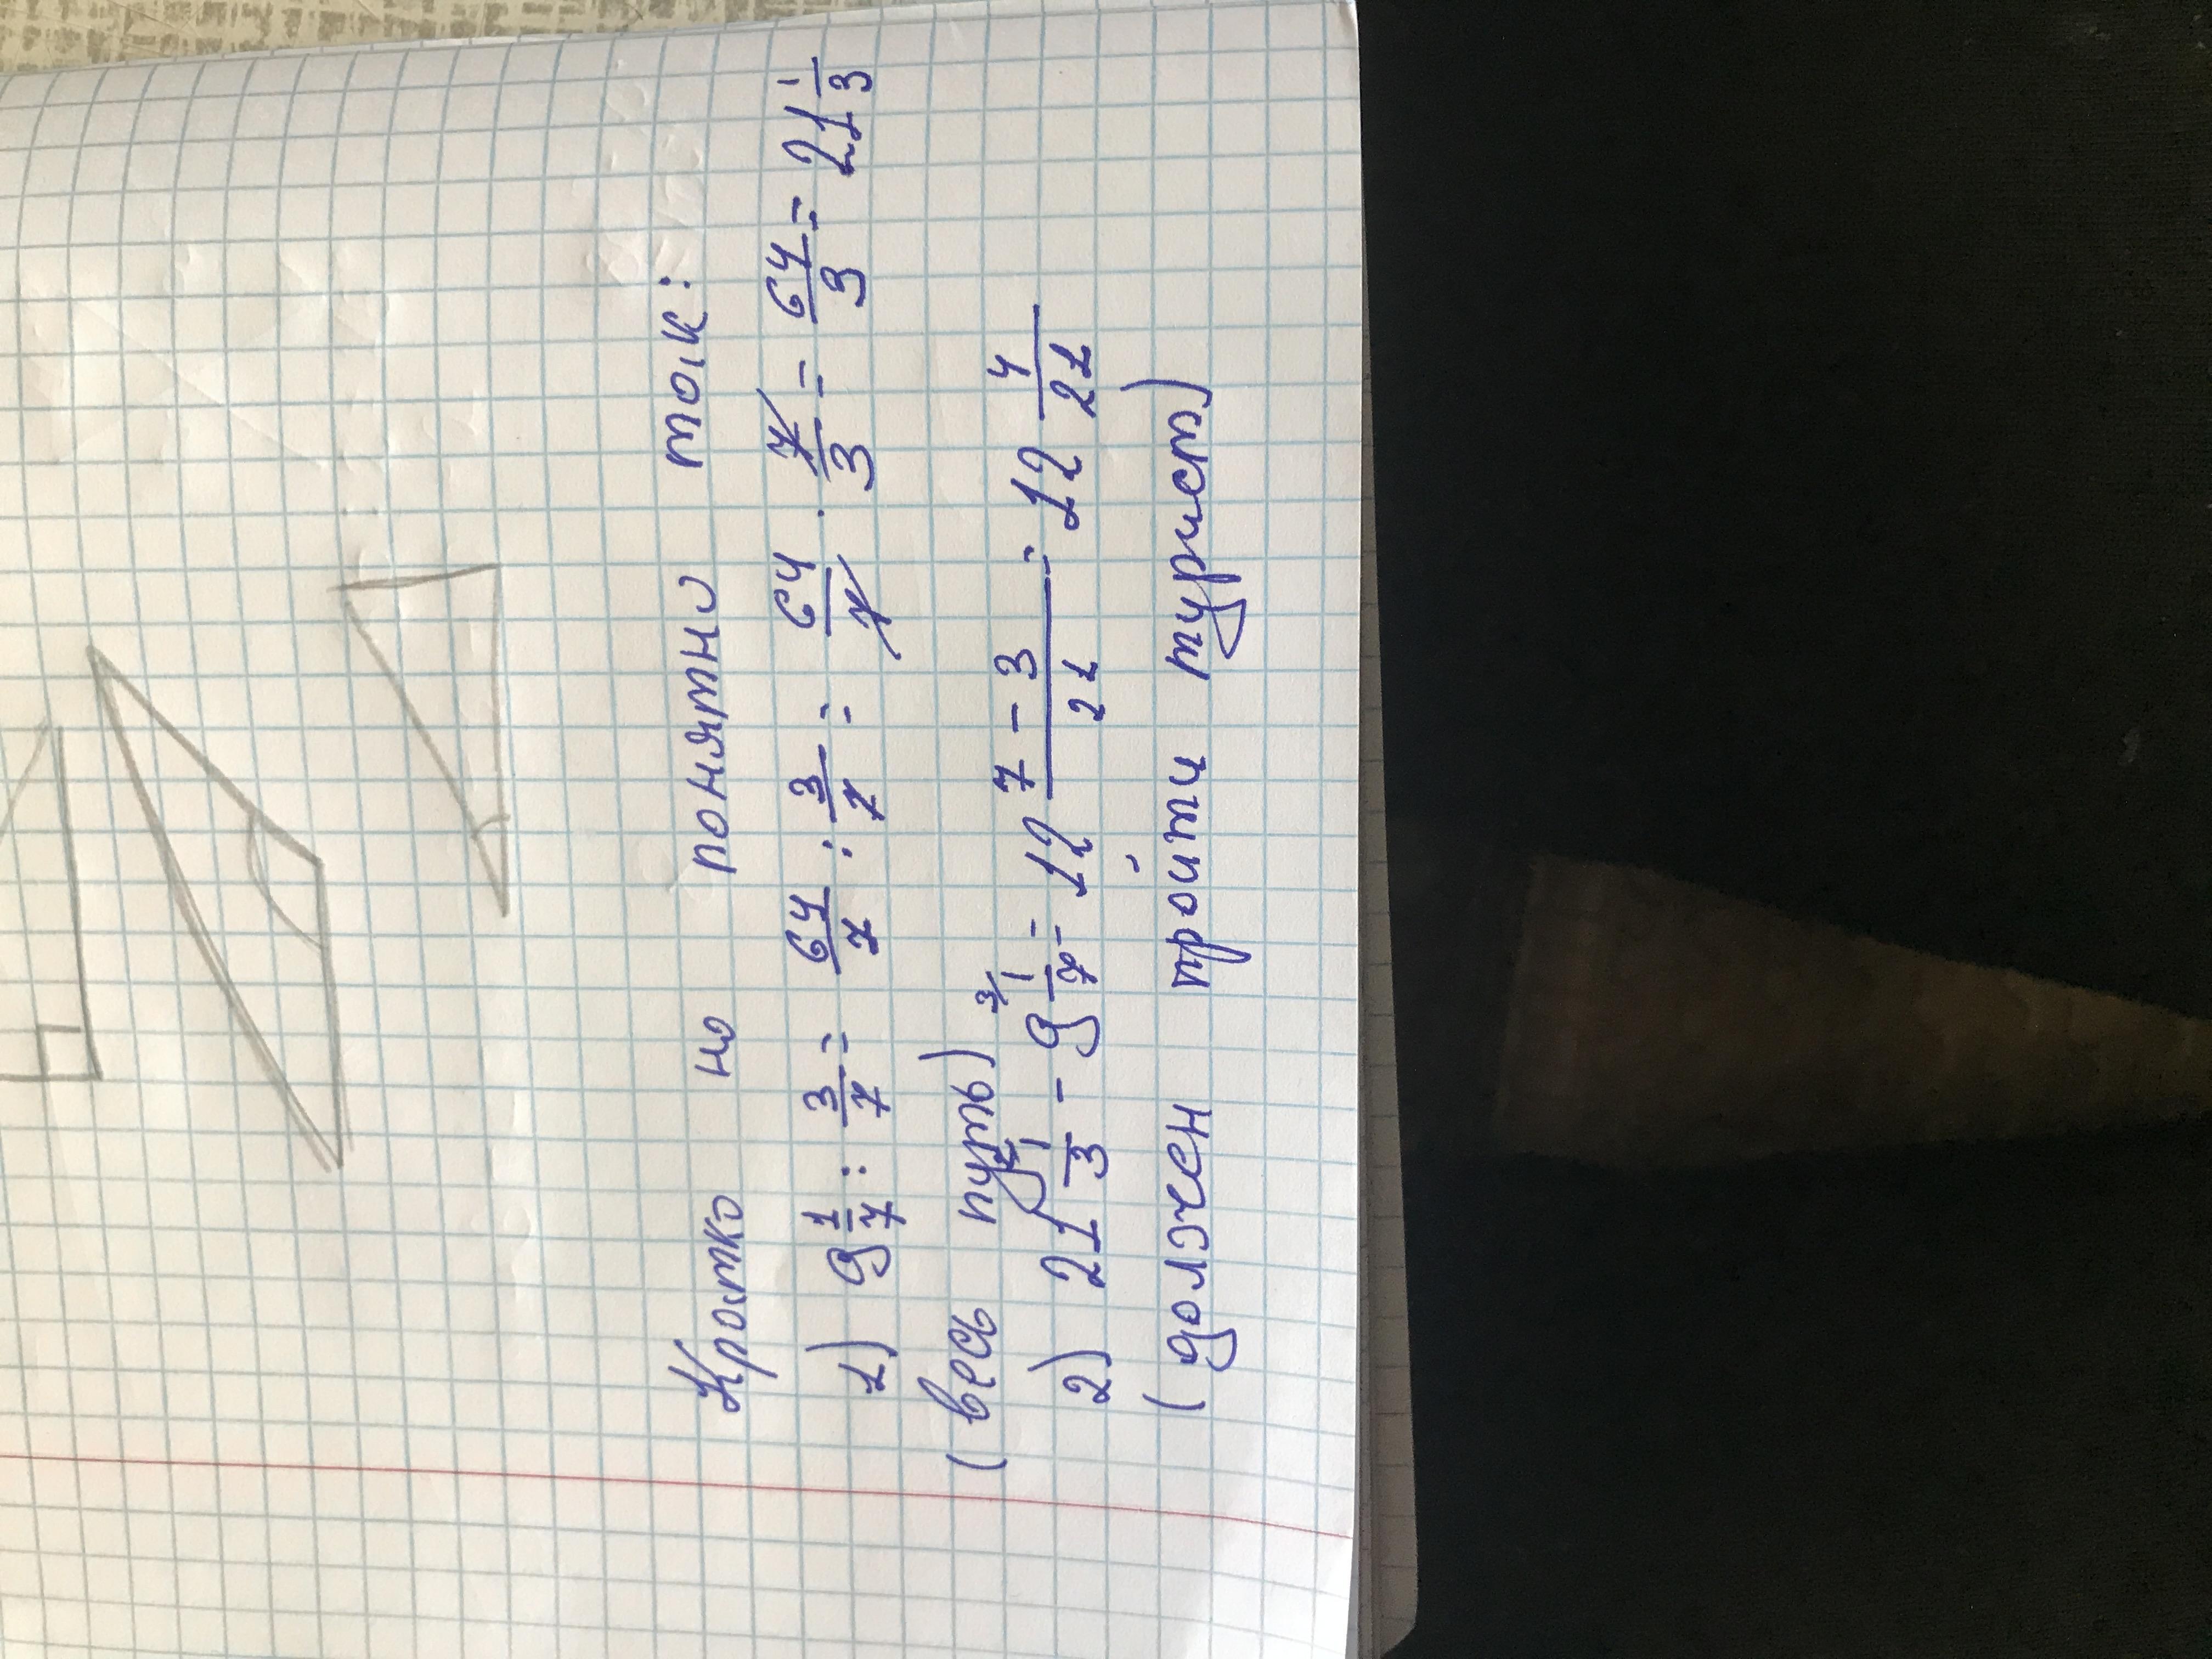 Кротко но понятно так:
1) 9 1/7 : 3/7 = 64/7 : 3/7 = 64/7 · 7/3 = 64/3 = 21 1/3
(весь путь)
2) 21 1/3 - 9 1/7 = 12 7-3/21 = 12 4/21
(должен пройти турист)